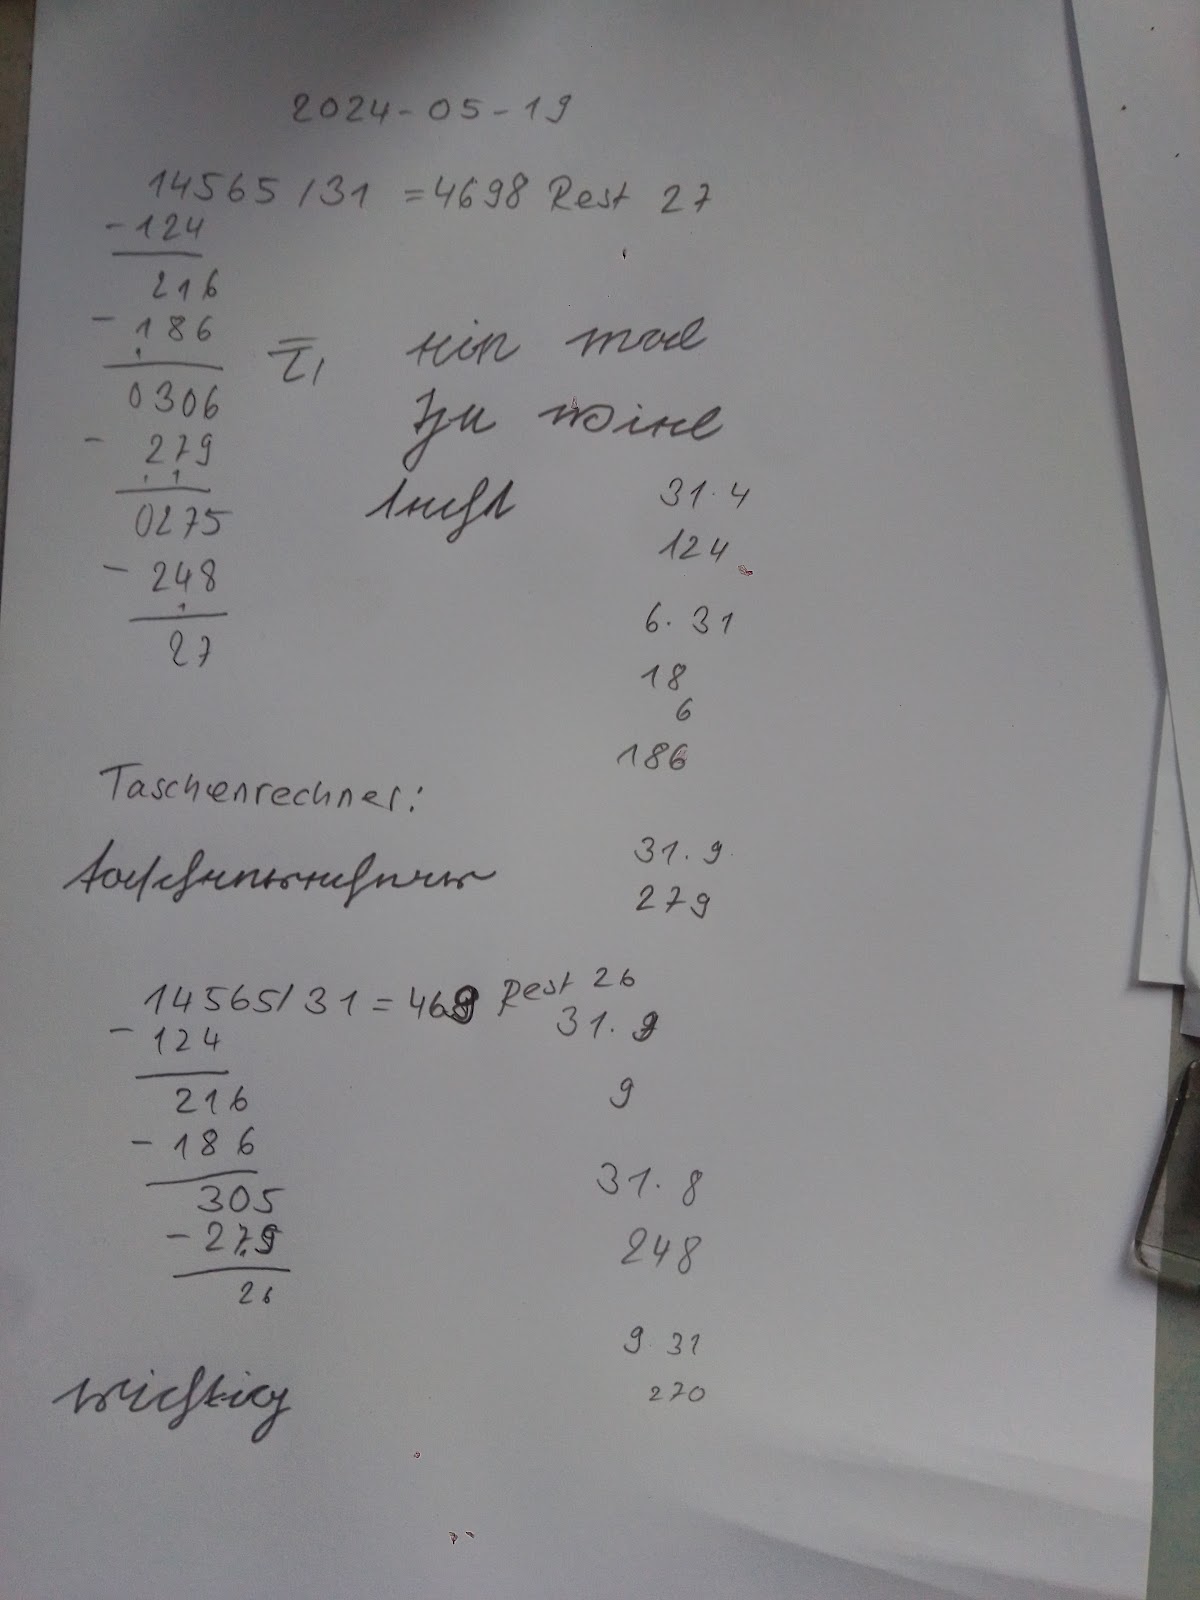 2024-05-19
14565 / 31 = 4698 Rest 27
-124
216
- 186
0306
- 279
0275
- 248
27
ein mal
zu viel
31·4
124
6·31
18
6
186
Taschenrechner:
31·9
279
taschenrechner
14565/31 = 469 Rest 26
- 124
216
- 186
305
- 279
26
31·9
9
31·8
248
9 31
270
wichtig